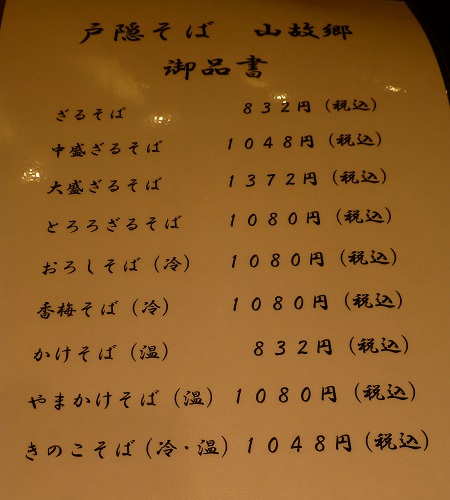 戸隠そば 山故郷
御品書
ざるそば 832円(税込)
中盛ざるそば 1048円(税込)
大盛ざるそば 1372円(税込)
とろろざるそば 1080円(税込)
おろしそば(冷) 1080円(税込)
香梅そば(冷) 1080円(税込)
かけそば(温) 832円(税込)
やまかけそば(温) 1080円(税込)
きのこそば(冷・温) 1048円(税込)